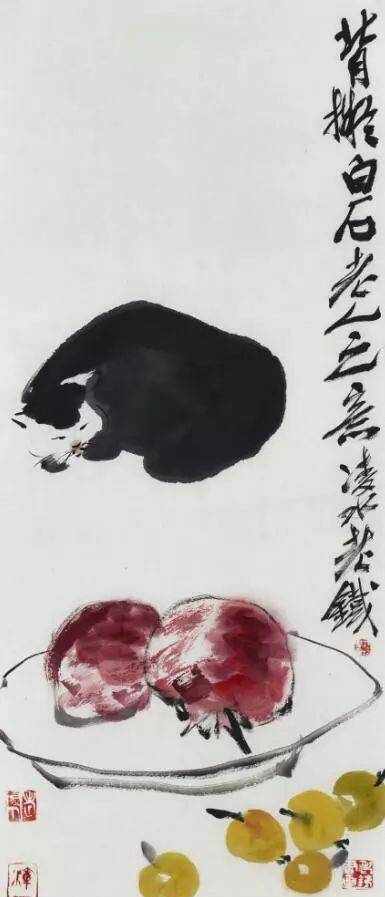 背擬白石老人之意凌水老鐵